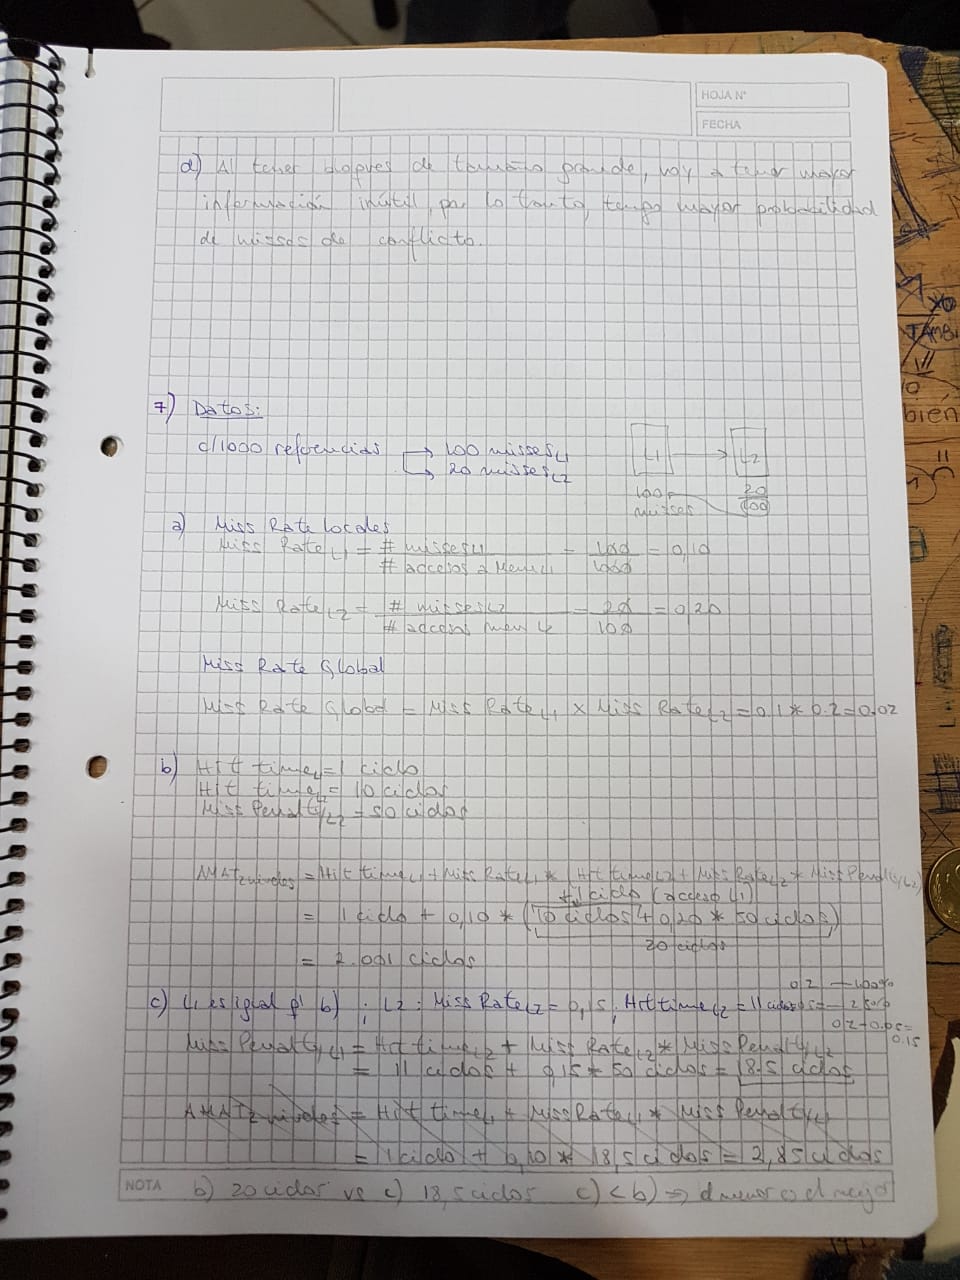 HOJA N°
FECHA
d) Al tener bloques de tamaño grande, voy a tener mayor
información inútil, por lo tanto, tengo mayor probabilidad
de misses de conflicto.
7) Datos:
c/1000 referencias → 100 misses L1
→ 20 misses L2
L1 → L2
100 misses
20/100
a) Miss Rate locales
Miss Rate L1 = # misses L1 / # accesos a mem L1 = 100/1000 = 0,10
Miss Rate L2 = # misses L2 / # accesos mem = 20/100 = 0,20
Miss Rate Global
Miss Rate Global = Miss Rate L1 x Miss Rate L2 = 0,1 * 0.2 = 0,02
b) Hit time L1 = 1 ciclo
Hit time L2 = 10 ciclos
Miss Penalty L2 = 50 ciclos
AMAT 2 niveles = Hit time L1 + Miss Rate L1 * (Hit time L2 + Miss Rate L2 * Miss Penalty L2)
+1 ciclo (acceso L1)
= 1 ciclo + 0,10 * (10 ciclos + 0,20 * 50 ciclos)
20 ciclos
= ciclos
0,2 — 100%
c) L1 es igual b) ; L2: Miss Rate L2 = 0,15; Hit time L2 = 11 ciclos
0,2 - 0.05 =
0.15
Miss Penalty L1 = Hit time L2 + Miss Rate L2 * Miss Penalty L2
= 11 ciclos + 0,15 * 50 ciclos = 18,5 ciclos
AMAT 2 niveles = Hit time L1 + Miss Rate L1 * Miss Penalty L1
= 1 ciclo + 0,10 * 18,5 ciclos = 2,85 ciclos
NOTA b) 20 ciclos vs c) 18,5 ciclos c) < b) ⇒ el menor es el mejor
TAMB
bien